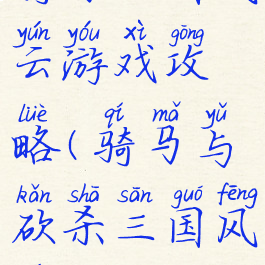 yún yóu xì gōng
云游戏攻
lüè qí mǎ yǔ
略(骑马与
kǎn shā sān guó fēng
砍杀三国风